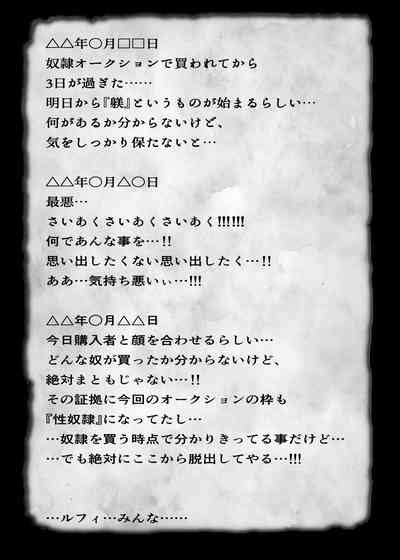 △△年〇月□□日
奴隷オークションで買われてから
3日が過ぎた……
明日から『躾』というものが始まるらしい…
何があるか分からないけど、
気をしっかり保たないと…
△△年〇月△〇日
最悪…
さいあくさいあくさいあく!!!!!!
何であんな事を…!!
思い出したくない思い出したく…!!
ああ…気持ち悪いぃ…!!!
△△年〇月△△日
今日購入者と顔を合わせるらしい…
どんな奴が買ったか分からないけど、
絶対まともじゃない…!!
その証拠に今回のオークションの枠も
『性奴隷』になってたし…
…奴隷を買う時点で分かりきってる事だけど…
…でも絶対にここから脱出してやる…!!!
…ルフィ…みんな……